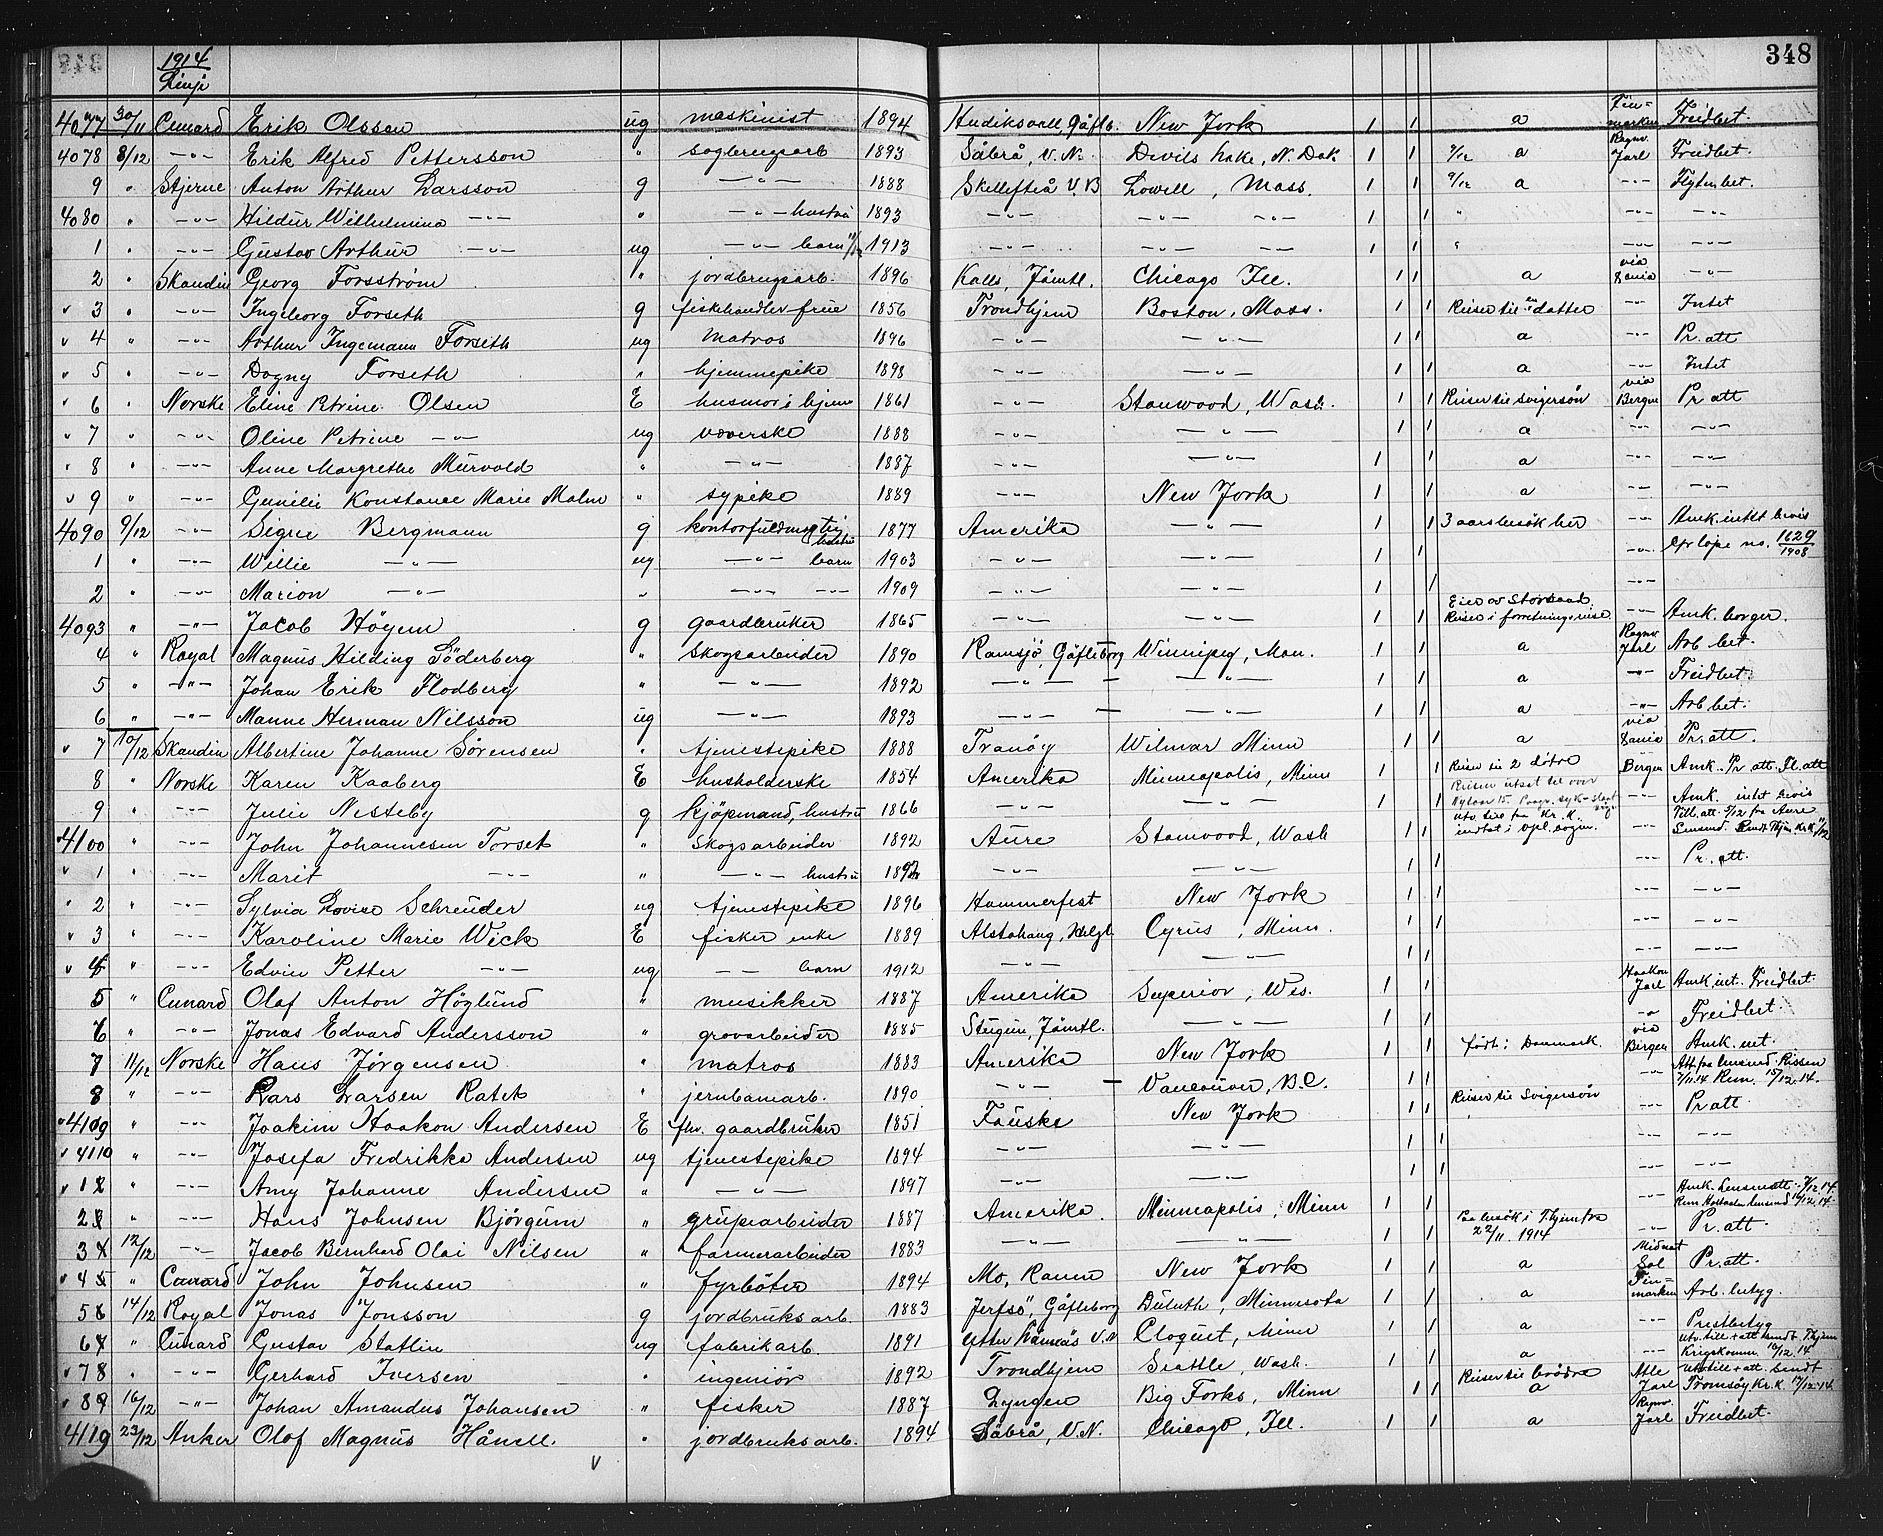 1914 348
Linje
4077 30/11 Cunard Erik Olsson ug maskinist 1894 Hudiksvall, Gäfle. New York 1 1 a Finmarken Freidbet.
4078 8/12 -"- Erik Alfred Pettersson " sagbrugsarb 1893 Säbrå, V.N. Devils Lake, N. Dak 1 1 9/12 a Ragnv. Jarl Freidbet.
9 " Stjerne Anton Arthur Larsson g -"- 1888 Skellefteå V.B Lowell, Mass. 1 1 9/12 a -"- Flytn.bet.
4080 " -"- Hildur Wilhelmina -"- " -"- hustru 1893 -"- -"- -"- 1 1 " -"- -"-
1 " -"- Gustav Arthur -"- ug -"- barn 1913 -"- -"- -"- 1 1 " -"- -"-
2 " Skandin Georg Forsström " jordbrugsarb. 1896 Kalls, Jämtl. Chicago Ill. 1 1 a via Dania -"-
v 3 " -"- Ingeborg Forseth g fiskehandler frue 1856 Trondhjem Boston, Mass. 1 1 Reiser til en datter -"- Intet
v 4 " -"- Arthur Ingemann Forseth ug matros 1896 -"- -"- 1 1 a -"- Pr. att
v 5 " -"- Dagny Forseth " hjemmepike 1898 -"- -"- 1 1 a -"- Intet
v 6 " Norske Eline Petrine Olsen E husmor i hjem 1861 -"- Stanwood, Wash. 1 1 Reiser til svigersøn via Bergen Pr att
v 7 " -"- Oline Petrine -"- ug væverske 1888 -"- -"- 1 1 a -"-
v 8 " -"- Anne Margrethe Murvold " -"- 1887 -"- -"- 1 1 a -"- -"-
v 9 " -"- Gunelie Konstance Marie Malm " sypike 1889 -"- New York 1 1 a -"- -"-
4090 9/12 -"- Signe Bergmann g kontorfuldmægtig hustru 1877 Amerika -"- 1 1 3 aars besök her -"- Amk. intet bevis
1 " -"- Willie -"- ug -"- barn 1903 -"- -"- 1 1 -"- Cfr løpe no. 1629/1908
2 -"- Marion -"- " -"- -"- 1909 -"- -"- 1 1 -"-
4093 " -"- Jacob Höyem g gaardbruker 1865 1 1 Eier av Storsand Reiser i forretningsreise -"- Amk. borger.
4 " Royal Magnus Hilding Söderberg " skogsarbeider 1890 Ramsjö, Gäfleborg Winnipeg, Man. 1 1 a Ragnv. Jarl Arb bet.
5 " -"- Johan Erik Flodberg " -"- 1892 -"- -"- 1 1 a -"- Freidbet.
6 " -"- Manne Herman Nilsson ug -"- 1893 -"- -"- 1 1 a -"- Arb bet.
v 7 10/12 Skandin Albertine Johanne Sørensen " tjenestepike 1888 Tranöy Wilmar Minn 1 1 a via Dania Pr. att.
8 " Norske Karen Kaaberg E husholderske 1854 Amerika Minneapolis, Minn 1 1 Reiser til 2 døtre Bergen Amk. Pr att. Fl. att
9 " -"- Julie Nesteby g kjöpmand, hustru 1866 -"- -"- 1 1 Reisen utsat til over Nytaar 15. -"- Amk. intet bevis
4100 " -"- John Johannesen Torset " skogsarbeider 1892 Aure Stanwood, Wash 1 1 utv. till fra Kr. K. indtat i opl. sogn. -"- Till. att. 5/12 fra Aure Lensmd.
v 1 " -"- Marit -"- " -"- hustru 1892 -"- -"- 1 1 -"- Pr. att.
v 2 " -"- Sylvia Lovise Schreuder ug tjenestepike 1896 Hammerfest New York 1 1 -"- -"-
v 3 " -"- Karoline Marie Wick E fisker enke 1889 Alstahaug, Helgl. Cyrus, Minn. 1 1 -"- -"-
v 4 " -"- Edvin Petter -"- ug -"- barn 1912 -"- -"- 1 1 -"- -"-
5 " Cunard Olaf Anton Höglund " musikker 1887 Amerika Superior, Wis. 1 1 Haakon Jarl Amk. int. Freidbet.
6 " -"- Jonas Edvard Andersson " grovarbeider 1885 Stugun, Jämtl. -"- 1 1 -"- Freidbet.
7 11/12 Norske Hans Jørgensen " matros 1883 Amerika New York 1 1 født i Danmark. via Bergen Amk. int.
8 " -"- Lars Larsen Ratet " jernbanearb. 1890 -"- Vancouver, B.C. 1 1 -"- Att. fra lensmd. Rissen 7/11.14 15/12.14.
v 4109 " -"- Joakim Haakon Andersen E fhv. gaardbruker 1851 Fauske New York 1 1 Reiser til svigersøn -"- Pr att
v 4110 " -"- Josefa Fredrikke Andersen ug tjenestepike 1894 -"- -"- 1 1 -"- -"-
v 1 " -"- Amy Johanne Andersen " -"- 1897 -"- 1 1 -"- -"-
2 " -"- Hans Johnsen Bjørgum " grubearbeider 1887 Amerika Minneapolis, Minn 1 1 -"- Amk. Lensm att. 7/12.14
3 12/12 -"- Jacob Bernhard Olai Nilsen " farmerarbeider 1883 -"- -"- 1 1 Paa besök i Thjem fra 22/11. 1914 -"- Pr. att
v 4 " Cunard John Johnsen " fyrböter 1894 Mo, Ranen New York 1 1 a Midnat Sol Pr. att.
5 14/12 Royal Jonas Jonsson g jordbruksarb. 1883 Jerfsö, Gäfleborg Duluth, Minnesota 1 1 a Finmarken Arb. betyg.
6 " Cunard Gustav Stattin ug fabrikarb. 1891 Ytter Lännäs V.N Cloquet, Minn 1 1 a -"- Prestbetyg
v 7 " -"- Gerhard Iversen " ingeniör 1892 Trondhjem Seattle, Wash. 1 1 a -"- Utv. till + att sendt Thjem Krigskomm. 16/12.14
v 8 16/12 -"- Johan Amandus Johansen " fisker 1887 Lyngen Big Forks, Minn 1 1 Reiser til brødre a Atle Jarl Utv. till + att. sendt Tromsöy Kr. K. 17/12.14
4119 23/12 Anker Olof Magnus Hånell. " jordbruksarb. 1894 Säbrå, V.N. Chicago, Ill. 1 1 a Ragnv. Jarl Freidbet.
v